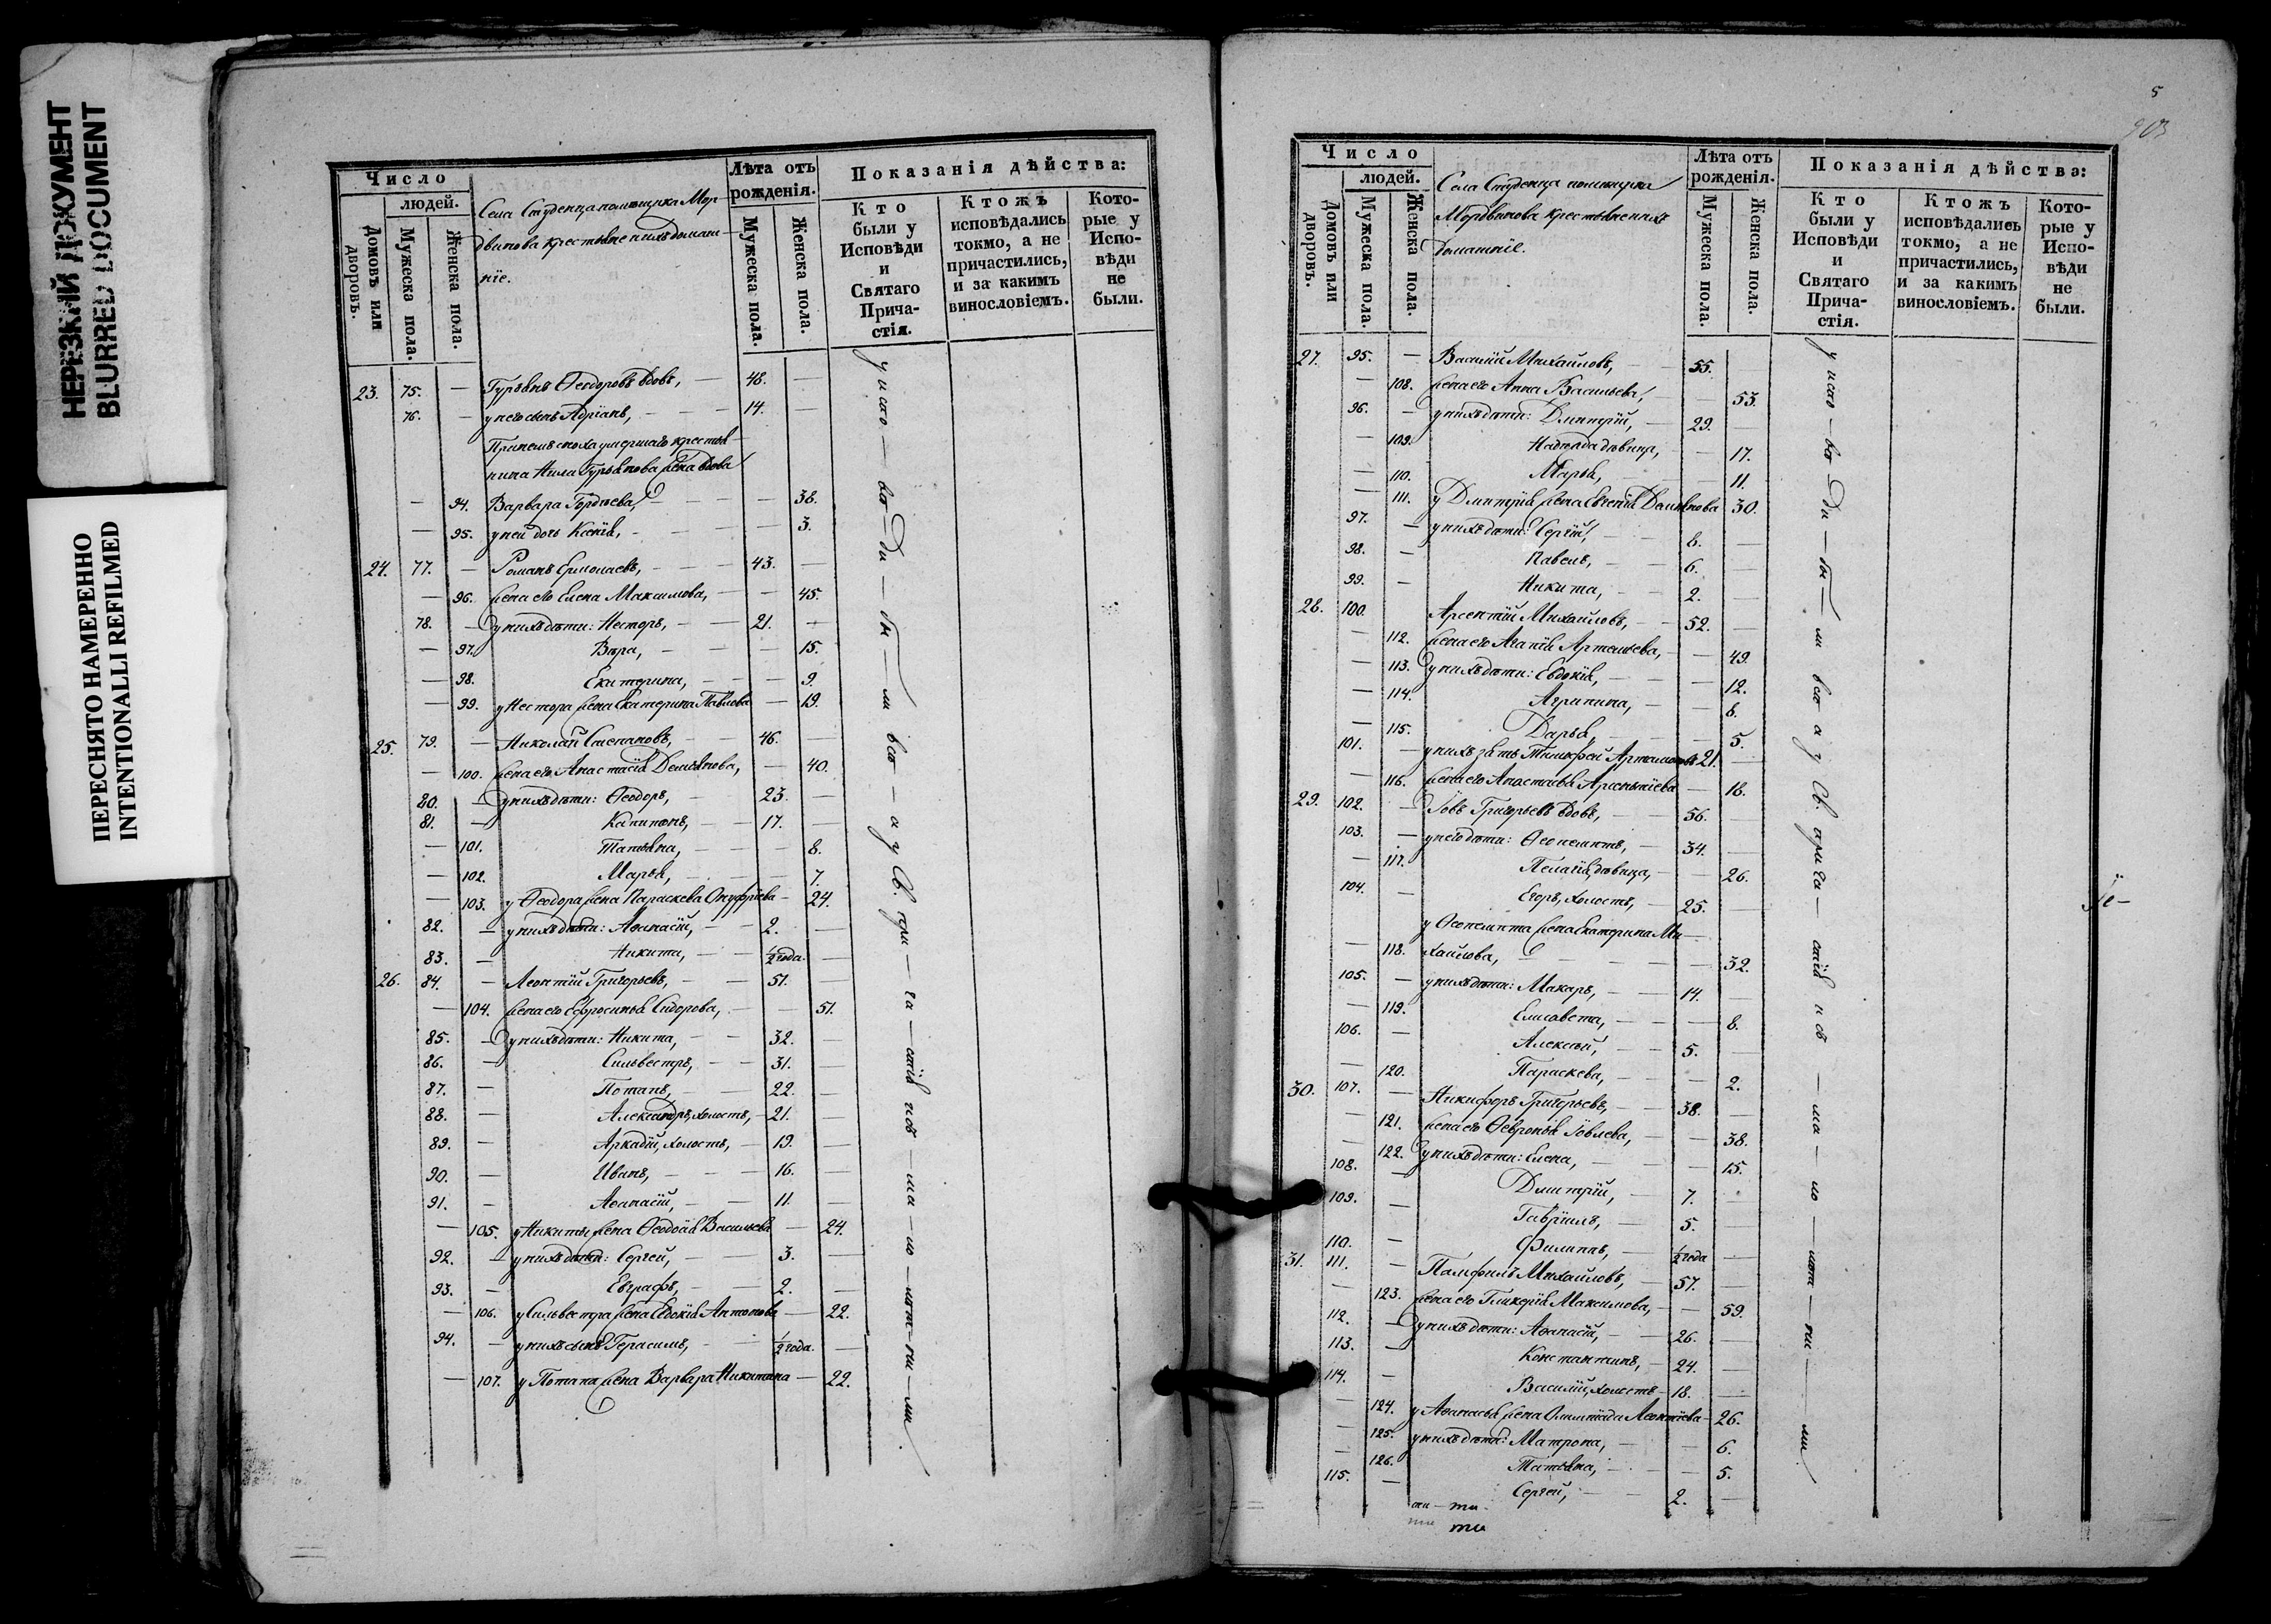 НЕРЕЗКИЙ ДОКУМЕНТ
BLURRED DOCUMENT
ПЕРЕСНЯТО НАМЕРЕННО
INTENTIONALLI REFILMED
Число
людей.
Домовъ или дворовъ.
Мужеска пола.
Женска пола.
Села Студенца помѣщика Мор-
двинова крестьяне и ихъ домаш-
нiе.
Лѣта отъ рожденiя.
Мужеска пола.
Женска пола.
Показанiя дѣйства:
Кто были у Исповѣди и Святаго Прича-стiя.
Ктожъ исповѣдались токмо, а не причастились, и за какимъ винословiемъ.
Кото-рые у Испо-вѣди не были.
23. 75. — Гурьянъ Ѳеодоровъ вдовъ, — 48. —
76. — у него сынъ Адрiанъ, — 14. —
умершаго крестья-
нина Нила Гурьянова жена вдова
— 94. Варвара Гордѣева, — 38.
— 95. у ней дочь Ксенiя, — 3.
24. 77. — Романъ Ермолаевъ, — 43. —
— 96. жена его Елена Максимова, — 45.
78. — у нихъ дѣти: Несторъ, — 21. —
— 97. Вѣра, — 15.
— 98. Екатерина, — 9.
— 99. у Нестора жена Екатерина Павлова — 19.
25. 79. — Николай Степановъ, — 46. —
— 100. жена его Анастасiя Демьянова, — 40.
80. — у нихъ дѣти: Ѳеодоръ, — 23. —
81. — Капитонъ, — 17. —
— 101. Татьяна, — 8.
— 102. Марья, — 7.
— 103. у Ѳеодора жена Параскева Онуфрiева — 24.
82. — у нихъ дѣти: Аѳанасiй, — 2. —
83. — Никита, — 1/2 года. —
26. 84. — Леонтiй Григорьевъ, — 51. —
— 104. жена его Ефросинья Сидорова, — 51.
85. — у нихъ дѣти: Никита, — 32. —
86. — Сильвестръ, — 31. —
87. — Потапъ, — 22. —
88. — Александръ, холостъ, — 21. —
89. — Аркадiй, холостъ, — 19. —
90. — Иванъ, — 16. —
91. — Аѳанасiй, — 11. —
— 105. у Никиты жена Ѳеодосiя Васильева — 24.
92. — у нихъ дѣти: Сергей, — 3. —
93. — Евграфъ, — 2. —
— 106. у Сильвестра жена Евдокiя Антонова — 22.
94. — у нихъ сынъ Герасимъ, — 1/2 года. —
— 107. у Потапа жена Варвара Никитина — 22.
у испо — вѣ — ди — бы — ли
5
903
Число
людей.
Домовъ или дворовъ.
Мужеска пола.
Женска пола.
Села Студенца помѣщика
Мордвинова крестьяне и ихъ
домашнiе.
Лѣта отъ рожденiя.
Мужеска пола.
Женска пола.
Показанiя дѣйства:
Кто были у Исповѣди и Святаго Прича-стiя.
Ктожъ исповѣдались токмо, а не причастились, и за какимъ винословiемъ.
Кото-рые у Испо-вѣди не были.
27. 95. — Василiй Михайловъ, — 55.
— 108. жена его Анна Васильева, — 53.
96. — у нихъ дѣти: Дмитрiй, — 29. —
— 109. Надежда дѣвица, — 17.
— 110. Марья, — 11.
— 111. у Дмитрiя жена Евгенiя Демьянова 30.
97. — у нихъ дѣти: Сергiй, — 8. —
98. — Павелъ, — 6. —
99. — Никита, — 2. —
28. 100. Арсентiй Михайловъ, — 52. —
— 112. жена его Агапiя Артемьева, — 49.
— 113. у нихъ дѣти: Евдокiя, — 12.
— 114. Агрипина, — 8.
— 115. Дарья, — 5.
101. — у нихъ зять Тимофей Артамоновъ 21. —
— 116. жена его Анастасья Арсентiева — 18.
29. 102. — Iовъ Григорьевъ вдовъ, — 56. —
103. — у него дѣти: Ѳеопемптъ, — 34. —
— 117. Пелагiя, дѣвица, — 26.
104. — Егоръ, холостъ, — 25. —
у Ѳеопемпта жена Екатерина Ми-
— 118. хайлова, — 32.
105. — у нихъ дѣти: Макаръ, — 14. —
— 119. Елисавета, — 8.
106. — Алексѣй, — 5. —
— 120. Параскева, — 2.
30. 107. — Никифоръ Григорьевъ, — 38. —
— 121. жена его Ѳевронья Iовлева, — 38.
— 122. у нихъ дѣти: Елена, — 15.
108. — Дмитрiй, — 7. —
109. — Гаврiилъ, — 5. —
110. — Филиппъ, — 1/2 года —
31. 111. — Памфилъ Михайловъ, — 57. —
— 123. жена его Гликерiя Максимова, — 59.
112. — у нихъ дѣти: Аѳанасiй, — 26. —
113. — Константинъ, — 24. —
114. — Василiй, холостъ — 18. —
— 124. у Аѳанасья жена Олимпiада Леонтiева — 26.
— 125. у нихъ дѣти: Матрона, — 6.
— 126. Татьяна, — 5.
115. — Сергей, — 2. —
у испо — вѣ — ди — бы — ли